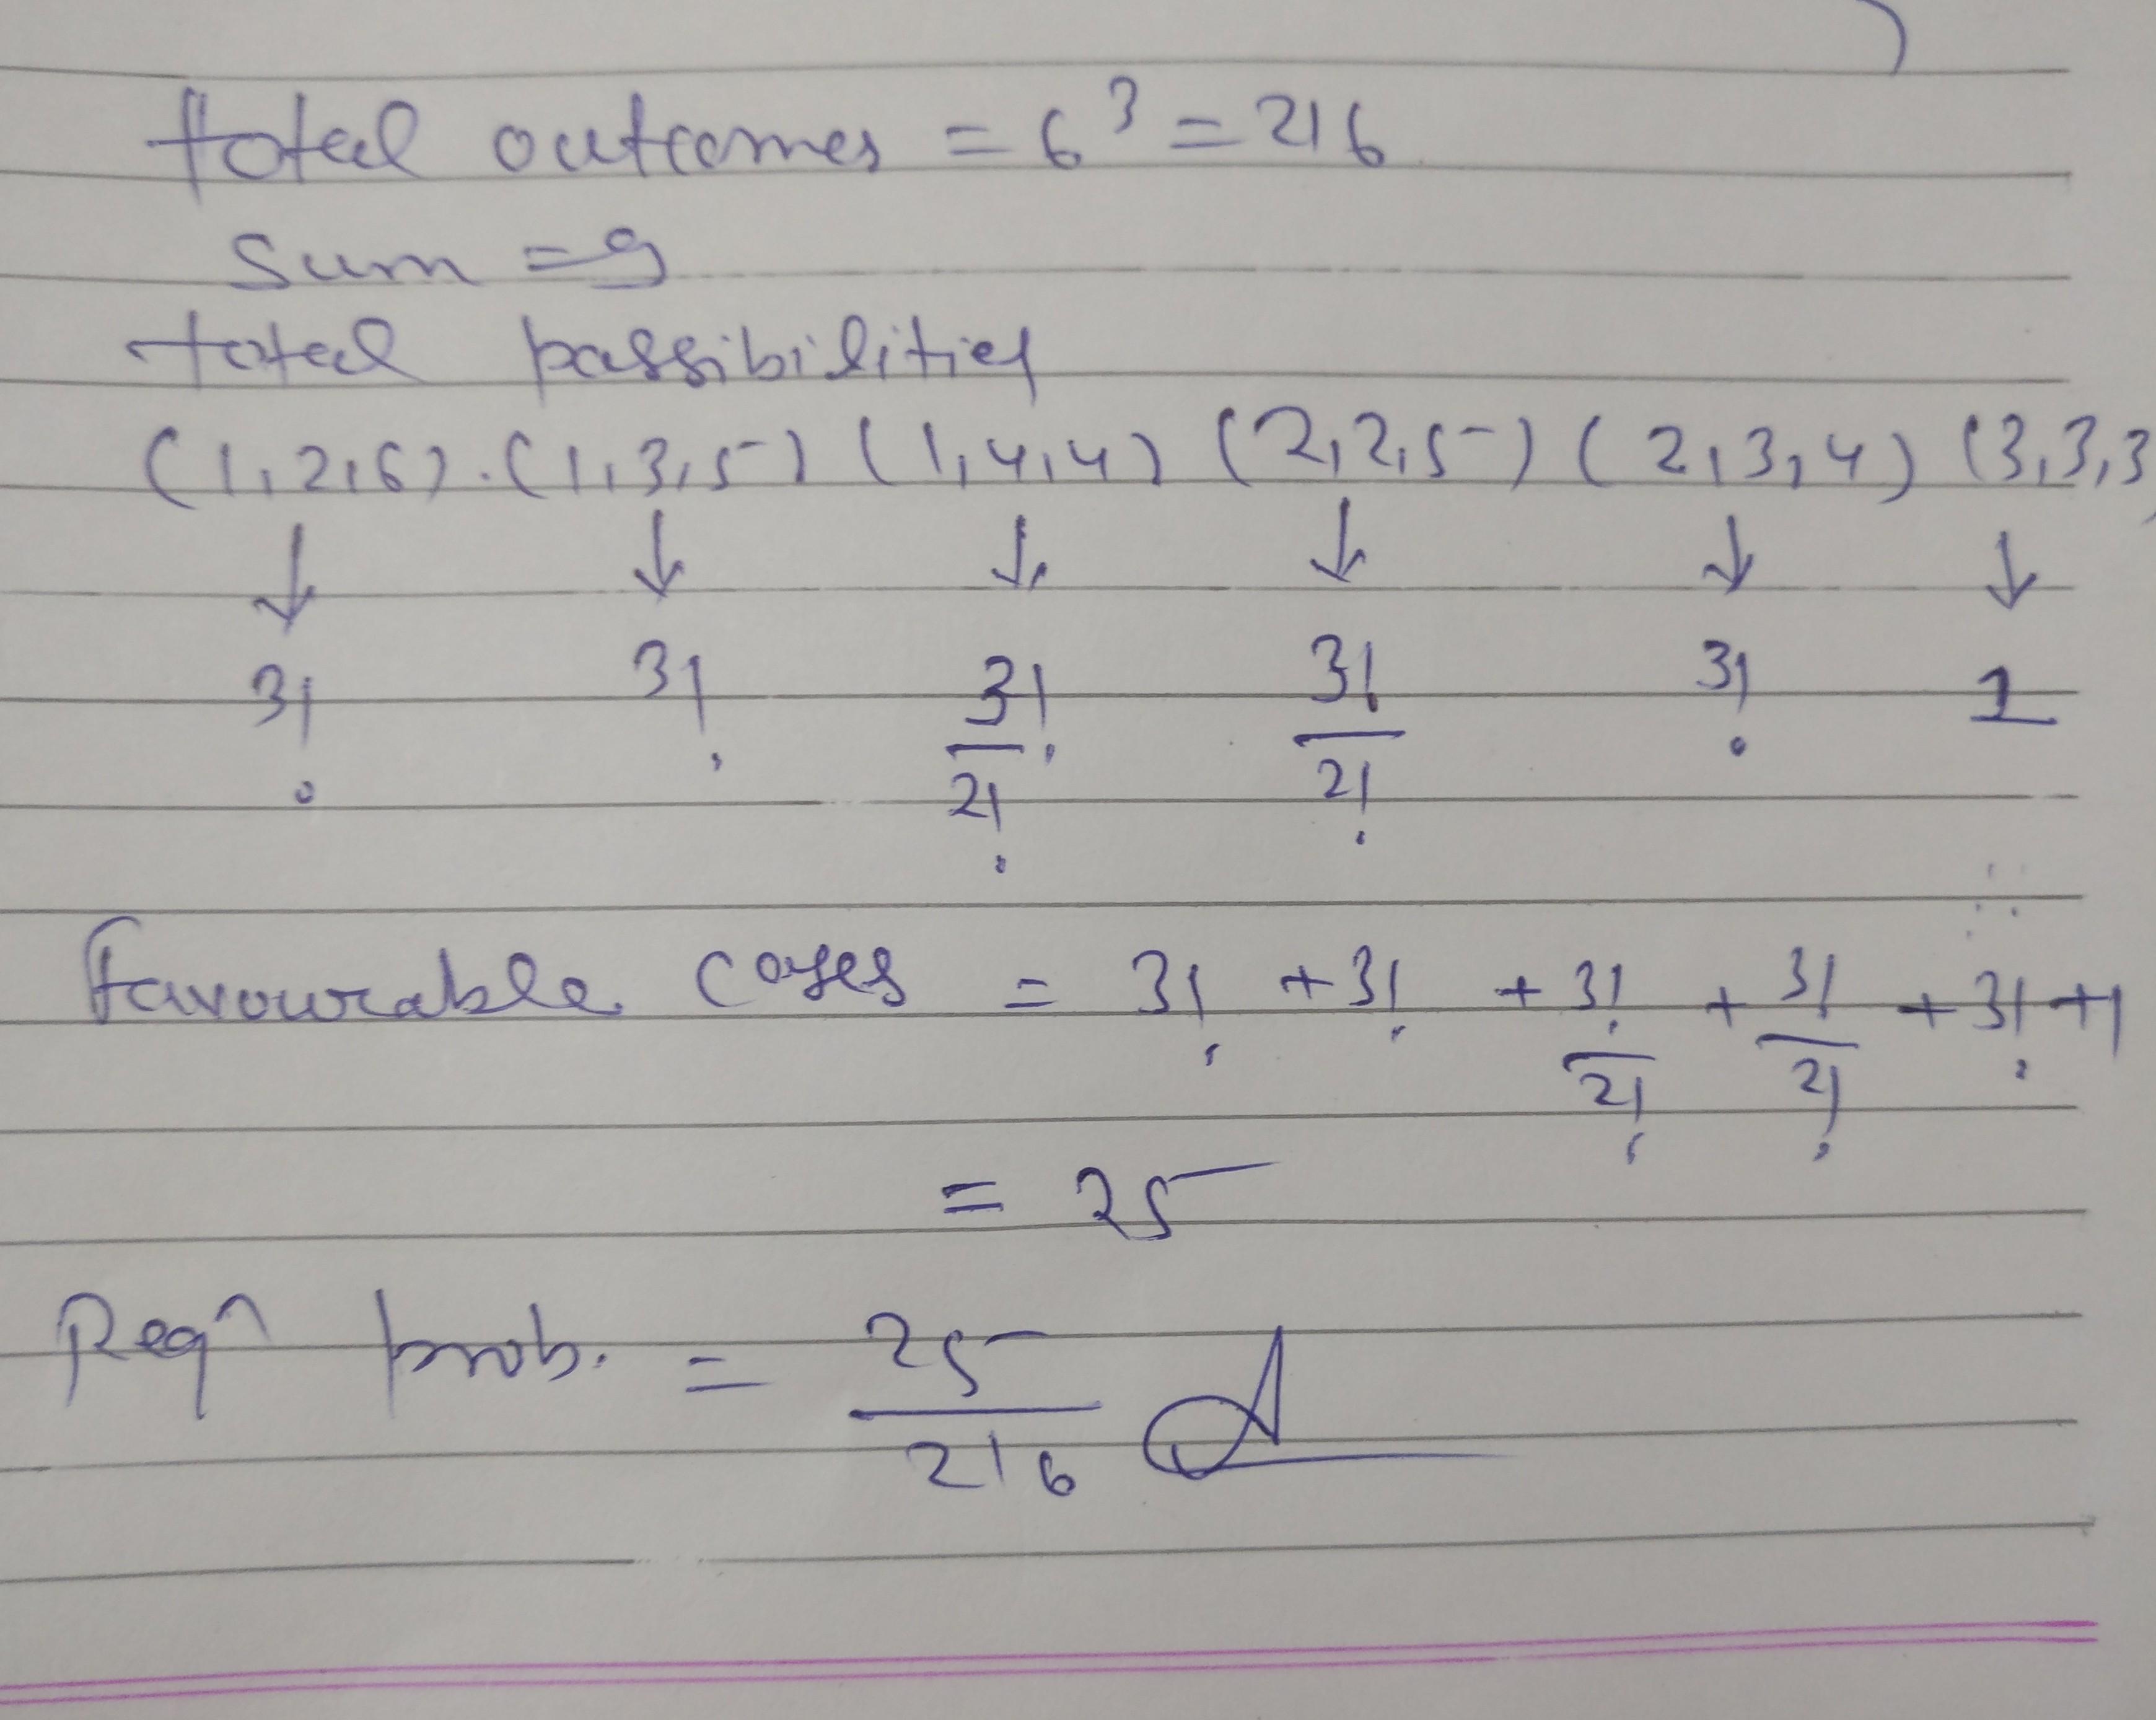 total outcomes = 6³ = 216
Sum = 9
total possibilities
(1,2,6). (1,3,5) (1,4,4) (2,2,5) (2,3,4) (3,3,3)
↓ ↓ ↓ ↓ ↓ ↓
3! 3! 3!/2! 3!/2! 3! 1
Favourable cases = 3! + 3! + 3!/2! + 3!/2! + 3! + 1
= 25
Reqⁿ prob. = 25/216 A